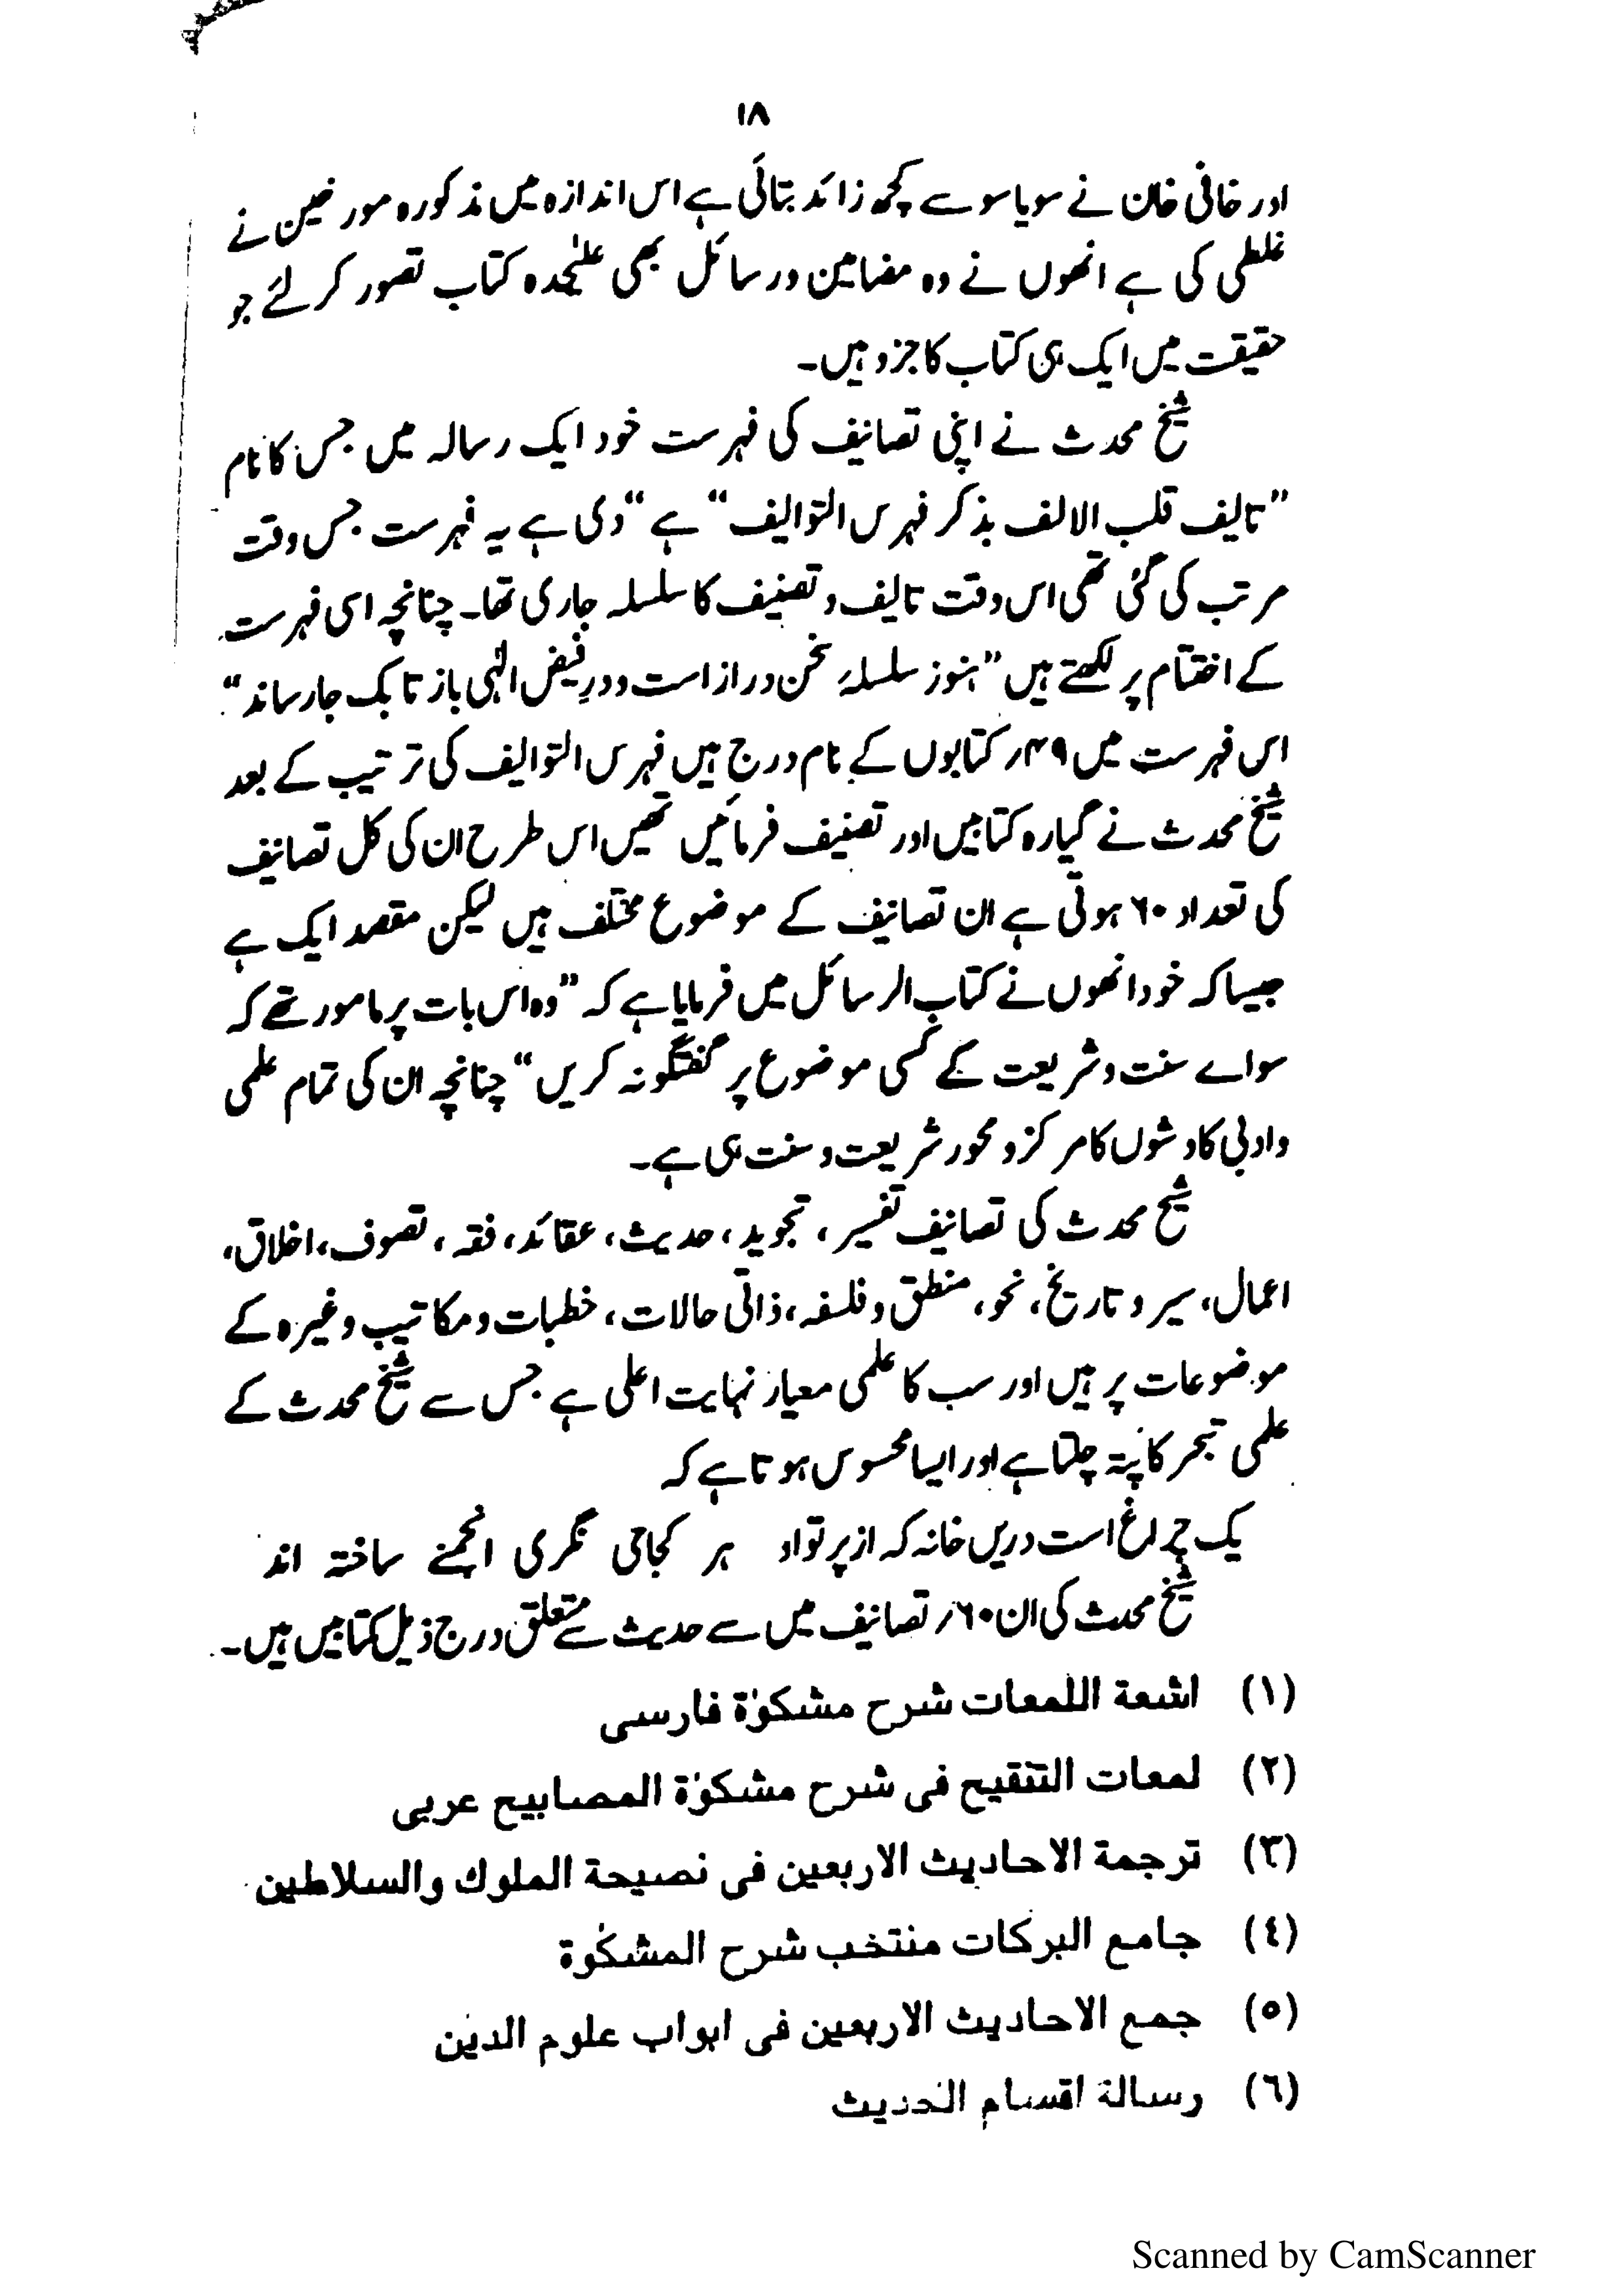 ۱۸
اور خافی خان نے سو یا سو سے کچھ زائد بتائی ہے اس اندازہ میں مذکورہ مورخین نے
غلطی کی ہے انھوں نے وہ مضامین ورسائل بھی علیٰحدہ کتاب تصور کر لئے جو
حقیقت میں ایک ہی کتاب کا جزو ہیں۔
شیخ محدث نے اپنی تصانیف کی فہرست خود ایک رسالہ میں جس کا نام
”تالیف قلب الالف بذکر فہرس التوالیف“ ہے “دی ہے یہ فہرست جس وقت
مرتب کی گئی تھی اس وقت تالیف و تصنیف کا سلسلہ جاری تھا۔ چنانچہ اسی فہرست
کے اختتام پر لکھتے ہیں ”ہنوز سلسلۂ سخن دراز است و در فیض الٰہی باز تا بکجا رساند“
اس فہرست میں ۴۹؍ کتابوں کے نام درج ہیں فہرس التوالیف کی ترتیب کے بعد
شیخ محدث نے گیارہ کتابیں اور تصنیف فرمائیں تھیں اس طرح ان کی کل تصانیف
کی تعداد ۶۰ ہوتی ہے ان تصانیف کے موضوع مختلف ہیں لیکن مقصد ایک ہے
جیسا کہ خود انھوں نے کتاب الرسائل میں فرمایا ہے کہ ”وہ اس بات پر مامور تھے کہ
سواے سنت و شریعت کے کسی موضوع پر گفتگو نہ کریں“ چنانچہ ان کی تمام علمی
وادبی کاوشوں کا مرکز و محور شریعت و سنت ہی ہے۔
شیخ محدث کی تصانیف تفسیر، تجوید، حدیث، عقائد، فقہ، تصوف، اخلاق،
اعمال، سیر و تاریخ، نحو، منطق و فلسفہ، ذاتی حالات، خطبات و مکاتیب وغیرہ کے
موضوعات پر ہیں اور سب کا علمی معیار نہایت اعلی ہے جس سے شیخ محدث کے
علمی تبحر کا پتہ چلتا ہے اور ایسا محسوس ہوتا ہے کہ
یک چراغ است دریں خانہ کہ از پرتو او ہر کجا می نگری انجمنے ساختہ اند
شیخ محدث کی ان ۶۰؍ تصانیف میں سے حدیث سے متعلق درج ذیل کتابیں ہیں۔
(١) اشعة اللمعات شرح مشکوٰة فارسی
(٢) لمعات التنقیح فی شرح مشکوٰة المصابیح عربی
(٣) ترجمة الاحادیث الاربعین فی نصیحة الملوك والسلاطین
(٤) جامع البرکات منتخب شرح المشکوٰة
(٥) جمع الاحادیث الاربعین فی ابواب علوم الدین
(٦) رسالة اقسام الحدیث
Scanned by CamScanner